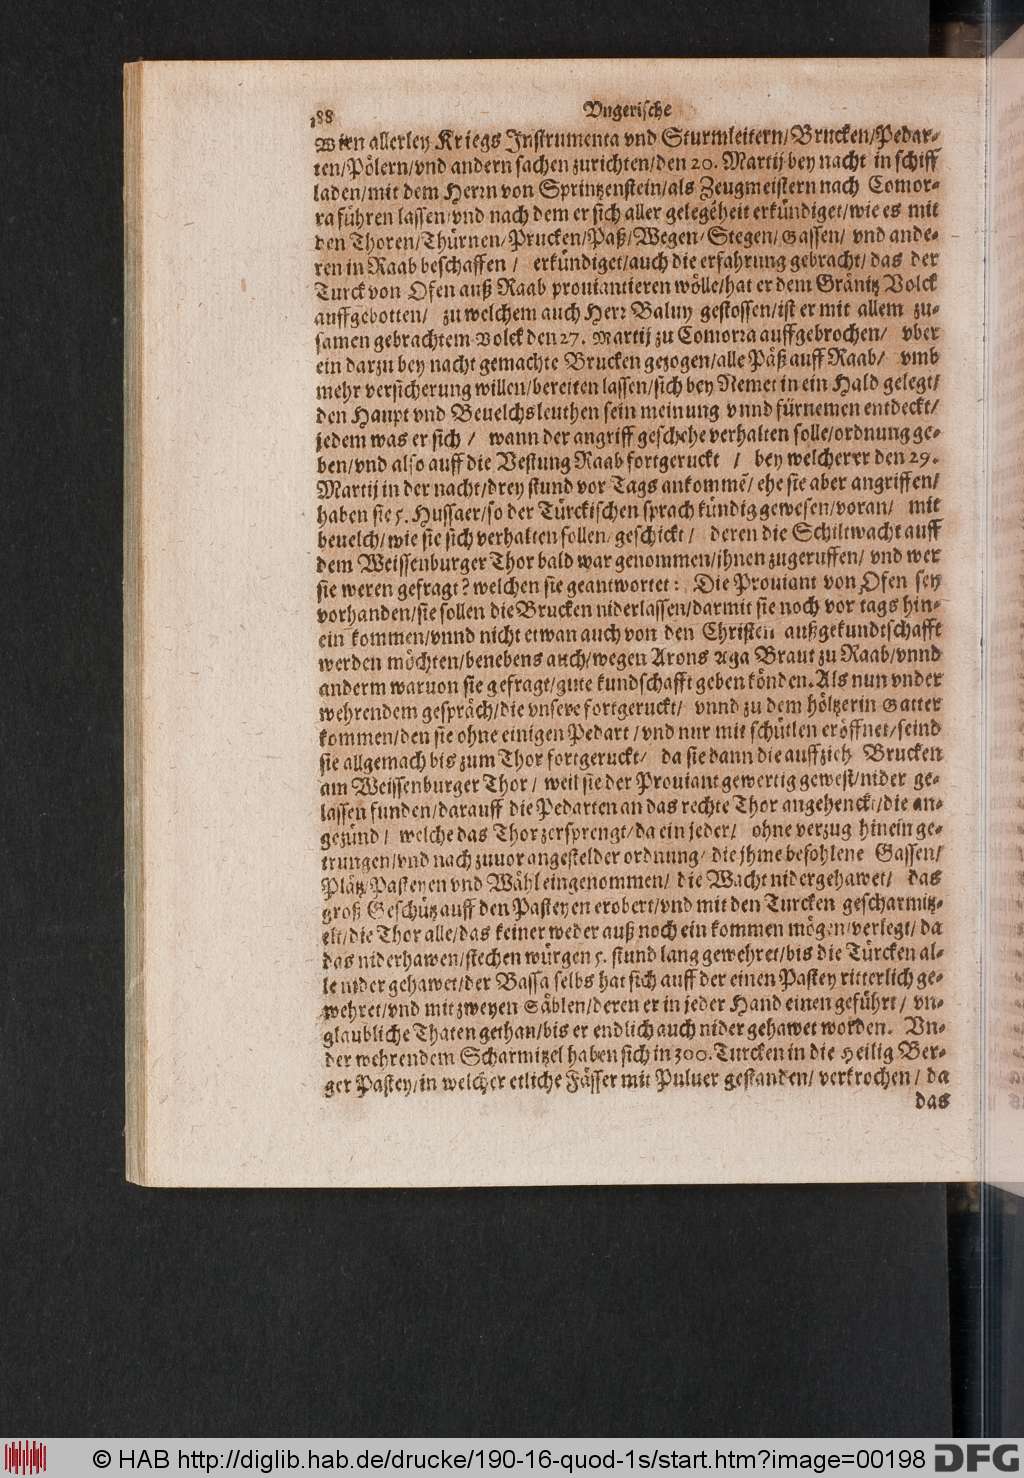 188 Vngerische
Wien allerley Kriegs Instrumenta vnd Sturmleitern/Brucken/Pedar-
ten/Pölern/vnd andern sachen zurichten/den 20. Martij bey nacht in schiff
laden/mit dem Herrn von Sprintzenstein/als Zeugmeistern nach Comor-
ra führen lassen/vnd nach dem er sich aller gelegēheit erkündiget/wie es mit
den Thoren/Thürnen/Prucken/Paß/Wegen/Stegen/Gassen/ vnd ande-
ren in Raab beschaffen / erkündiget/auch die erfahrung gebracht/das der
Turck von Ofen auß Raab prouiantieren wölle/hat er dem Gränitz Volck
auffgebotten/ zu welchem auch Herr Baluy gestossen/ist er mit allem zu-
samen gebrachtem Volck den 27. Martij zu Comorra auffgebrochen/ vber
ein darzu bey nacht gemachte Brucken gezogen/alle Päß auff Raab/ vmb
mehr versicherung willen/bereiten lassen/sich bey Nemet in ein Hald gelegt/
den Haupt vnd Beuelchsleuthen sein meinung vnnd fürnemen entdeckt/
jedem was er sich / wann der angriff geschehe verhalten solle/ordnung ge-
ben/vnd also auff die Vestung Raab fortgeruckt / bey welcher er den 29.
Martij in der nacht/drey stund vor Tags ankommē/ ehe sie aber angriffen/
haben sie 5. Hussaer/so der Türckischen sprach kündig gewesen/voran/ mit
beuelch/wie sie sich verhalten sollen/geschickt/ deren die Schiltwacht auff
dem Weissenburger Thor bald war genommen/ihnen zugeruffen/ vnd wer
sie weren gefragt? welchen sie geantwortet: Die Prouiant von Ofen sey
vorhanden/sie sollen die Brucken niderlassen/darmit sie noch vor tags hin-
ein kommen/vnnd nicht etwan auch von den Christen außgekundtschafft
werden möchten/benebens auch/wegen Arons Aga Braut zu Raab/vnnd
anderm waruon sie gefragt/gute kundschafft geben könden. Als nun vnder
wehrendem gespräch/die vnsere fortgeruckt/ vnnd zu dem höltzerin Gatter
kommen/den sie ohne einigen Pedart / vnd nur mit schütlen eröffnet/seind
sie allgemach bis zum Thor fortgeruckt/ da sie dann die auffzieh Brucken
am Weissenburger Thor / weil sie der Prouiant gewertig gewest/nider ge-
lassen funden/darauff die Pedarten an das rechte Thor angehenckt/die an-
gezünd / welche das Thor zersprengt/da ein jeder/ ohne verzug hinein ge-
trungen/vnd nach zuuor angestelder ordnung/ die jhme befohlene Gassen/
Plätz/Pasteyen vnd Wähl eingenommen/ die Wacht nidergehawet/ das
groß Geschütz auff den Pasteyen erobert/vnd mit den Turcken gescharmitz-
elt/die Thor alle/das keiner weder auß noch ein kommen mögen/verlegt/ da
das niderhawen/stechen würgen 5. stund lang gewehret/bis die Türcken al-
le nider gehawet/der Bassa selbs hat sich auff der einen Pastey ritterlich ge-
wehret/vnd mit zweyen Säblen/deren er in jeder Hand einen geführt / vn-
glaubliche Thaten gethan/bis er endlich auch nider gehawet worden. Vn-
der wehrendem Scharmitzel haben sich in 300. Turcken in die Heilig Ber-
ger Pastey/in welcher etliche Fässer mit Puluer gestanden/ verkrochen / da
das
© HAB http://diglib.hab.de/drucke/190-16-quod-1s/start.htm?image=00198 DFG